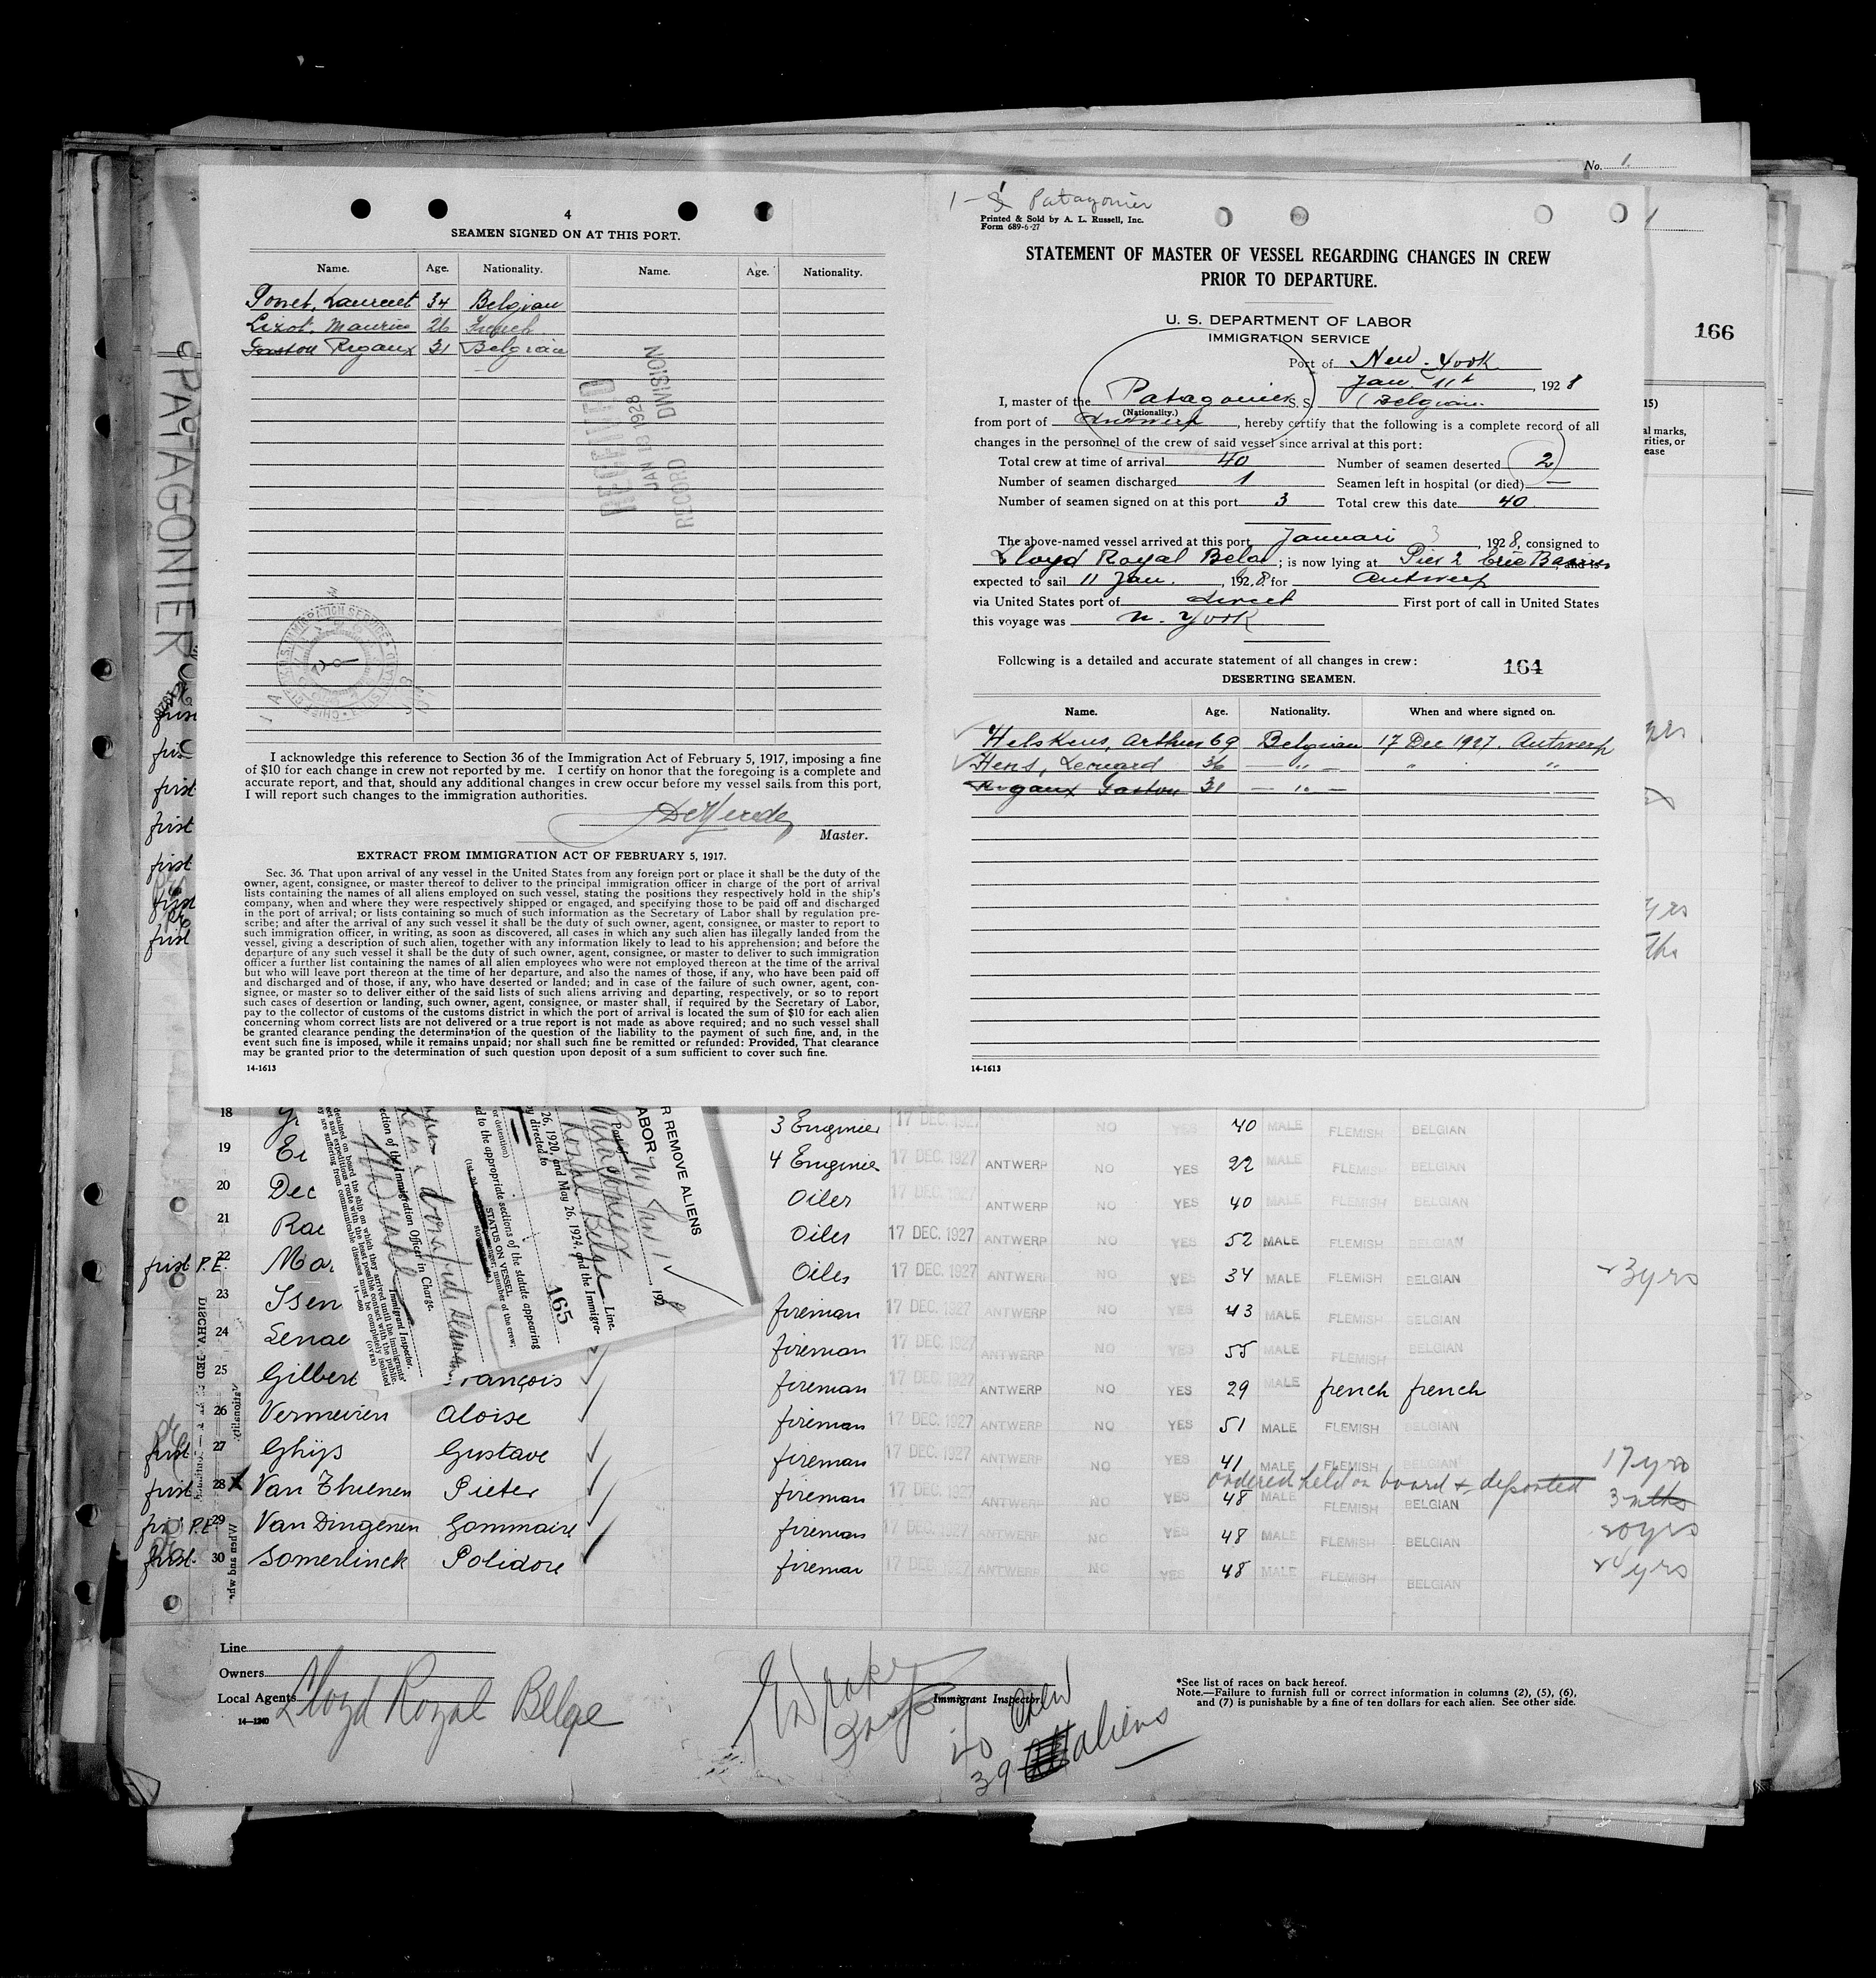 No. 1
4
SEAMEN SIGNED ON AT THIS PORT.
Name. Age. Nationality. Name. Age. Nationality.
34 Belgian
Lizot, Maurice 26 French
Gaston Rigaux 31 Belgian
RECORD
JAN 13 1928
DIVISION
I acknowledge this reference to Section 36 of the Immigration Act of February 5, 1917, imposing a fine
of $10 for each change in crew not reported by me. I certify on honor that the foregoing is a complete and
accurate report, and that, should any additional changes in crew occur before my vessel sails from this port,
I will report such changes to the immigration authorities.
Master.
EXTRACT FROM IMMIGRATION ACT OF FEBRUARY 5, 1917.
Sec. 36. That upon arrival of any vessel in the United States from any foreign port or place it shall be the duty of the
owner, agent, consignee, or master thereof to deliver to the principal immigration officer in charge of the port of arrival
lists containing the names of all aliens employed on such vessel, stating the positions they respectively hold in the ship's
company, when and where they were respectively shipped or engaged, and specifying those to be paid off and discharged
in the port of arrival; or lists containing so much of such information as the Secretary of Labor shall by regulation pre-
scribe; and after the arrival of any such vessel it shall be the duty of such owner, agent, consignee, or master to report to
such immigration officer, in writing, as soon as discovered, all cases in which any such alien has illegally landed from the
vessel, giving a description of such alien, together with any information likely to lead to his apprehension; and before the
departure of any such vessel it shall be the duty of such owner, agent, consignee, or master to deliver to such immigration
officer a further list containing the names of all alien employees who were not employed thereon at the time of the arrival
but who will leave port thereon at the time of her departure, and also the names of those, if any, who have been paid off
and discharged and of those, if any, who have deserted or landed; and in case of the failure of such owner, agent, con-
signee, or master so to deliver either of the said lists of such aliens arriving and departing, respectively, or so to report
such cases of desertion or landing, such owner, agent, consignee, or master shall, if required by the Secretary of Labor,
pay to the collector of customs of the customs district in which the port of arrival is located the sum of $10 for each alien
concerning whom correct lists are not delivered or a true report is not made as above required; and no such vessel shall
be granted clearance pending the determination of the question of the liability to the payment of such fine, and, in the
event such fine is imposed, while it remains unpaid; nor shall such fine be remitted or refunded: Provided, That clearance
may be granted prior to the determination of such question upon deposit of a sum sufficient to cover such fine.
14-1613
Patagonier
Printed & Sold by A. L. Russell, Inc.
Form 689-6-27
STATEMENT OF MASTER OF VESSEL REGARDING CHANGES IN CREW
PRIOR TO DEPARTURE.
U. S. DEPARTMENT OF LABOR
IMMIGRATION SERVICE
Port of New-York
Jan. 11th, 1928
I, master of the Patagonier S. S. (Belgian
(Nationality.)
from port of Antwerp, hereby certify that the following is a complete record of all
changes in the personnel of the crew of said vessel since arrival at this port:
Total crew at time of arrival 40 Number of seamen deserted 2
Number of seamen discharged 1 Seamen left in hospital (or died) —
Number of seamen signed on at this port 3 Total crew this date 40
The above-named vessel arrived at this port Januari 3, 1928, consigned to
Lloyd Royal Belge; is now lying at Pier 2 Erie Basin, and is
expected to sail 11 Jan., 1928 for Antwerp
via United States port of direct First port of call in United States
this voyage was N. York
Following is a detailed and accurate statement of all changes in crew: 164
DESERTING SEAMEN.
Name. Age. Nationality. When and where signed on.
Helskens, Arthur 69 Belgian 17 Dec 1927. Antwerp
Hens, Leonard 36 — " — " "
Rigaux Gaston 31 — " —
14-1613
166
PATAGONIER
R REMOVE ALIENS
ABOR
165
18 3 Engineer 17 DEC. 1927 NO YES 40 MALE FLEMISH BELGIAN
19 4 Engineer 17 DEC. 1927 ANTWERP NO YES 22 MALE FLEMISH BELGIAN
20 Dec Oiler 17 DEC. 1927 ANTWERP NO YES 40 MALE FLEMISH BELGIAN
21 Rae Oiler 17 DEC. 1927 ANTWERP NO YES 52 MALE FLEMISH BELGIAN
first P.E. 22 Mar Oiler 17 DEC. 1927 ANTWERP NO YES 34 MALE FLEMISH BELGIAN 3yrs
23 Isen fireman 17 DEC. 1927 ANTWERP NO YES 43 MALE FLEMISH BELGIAN
24 Lenae fireman 17 DEC. 1927 ANTWERP NO YES 55 MALE FLEMISH BELGIAN
25 Gilbert François fireman 17 DEC. 1927 ANTWERP NO YES 29 MALE french french
26 Vermeiren Aloise fireman 17 DEC. 1927 ANTWERP NO YES 51 MALE FLEMISH BELGIAN
first 27 Ghijs Gustave fireman 17 DEC. 1927 ANTWERP NO YES 41 MALE FLEMISH BELGIAN 17 yrs
ordered held on board & deported
first 28 x Van Thienen Pieter fireman 17 DEC. 1927 ANTWERP NO YES 48 MALE FLEMISH BELGIAN 3 mths
P.E. 29 Van Dingenen Gommaire fireman 17 DEC. 1927 ANTWERP NO YES 48 MALE FLEMISH BELGIAN 20yrs
first 30 Somerlinck Polidore fireman 17 DEC. 1927 ANTWERP NO YES 48 MALE FLEMISH BELGIAN 24 yrs
Line
Owners
Local Agents Lloyd Royal Belge
14—1240
Immigrant Inspector.
40 Crew
39 aliens
*See list of races on back hereof.
Note.—Failure to furnish full or correct information in columns (2), (5), (6),
and (7) is punishable by a fine of ten dollars for each alien. See other side.